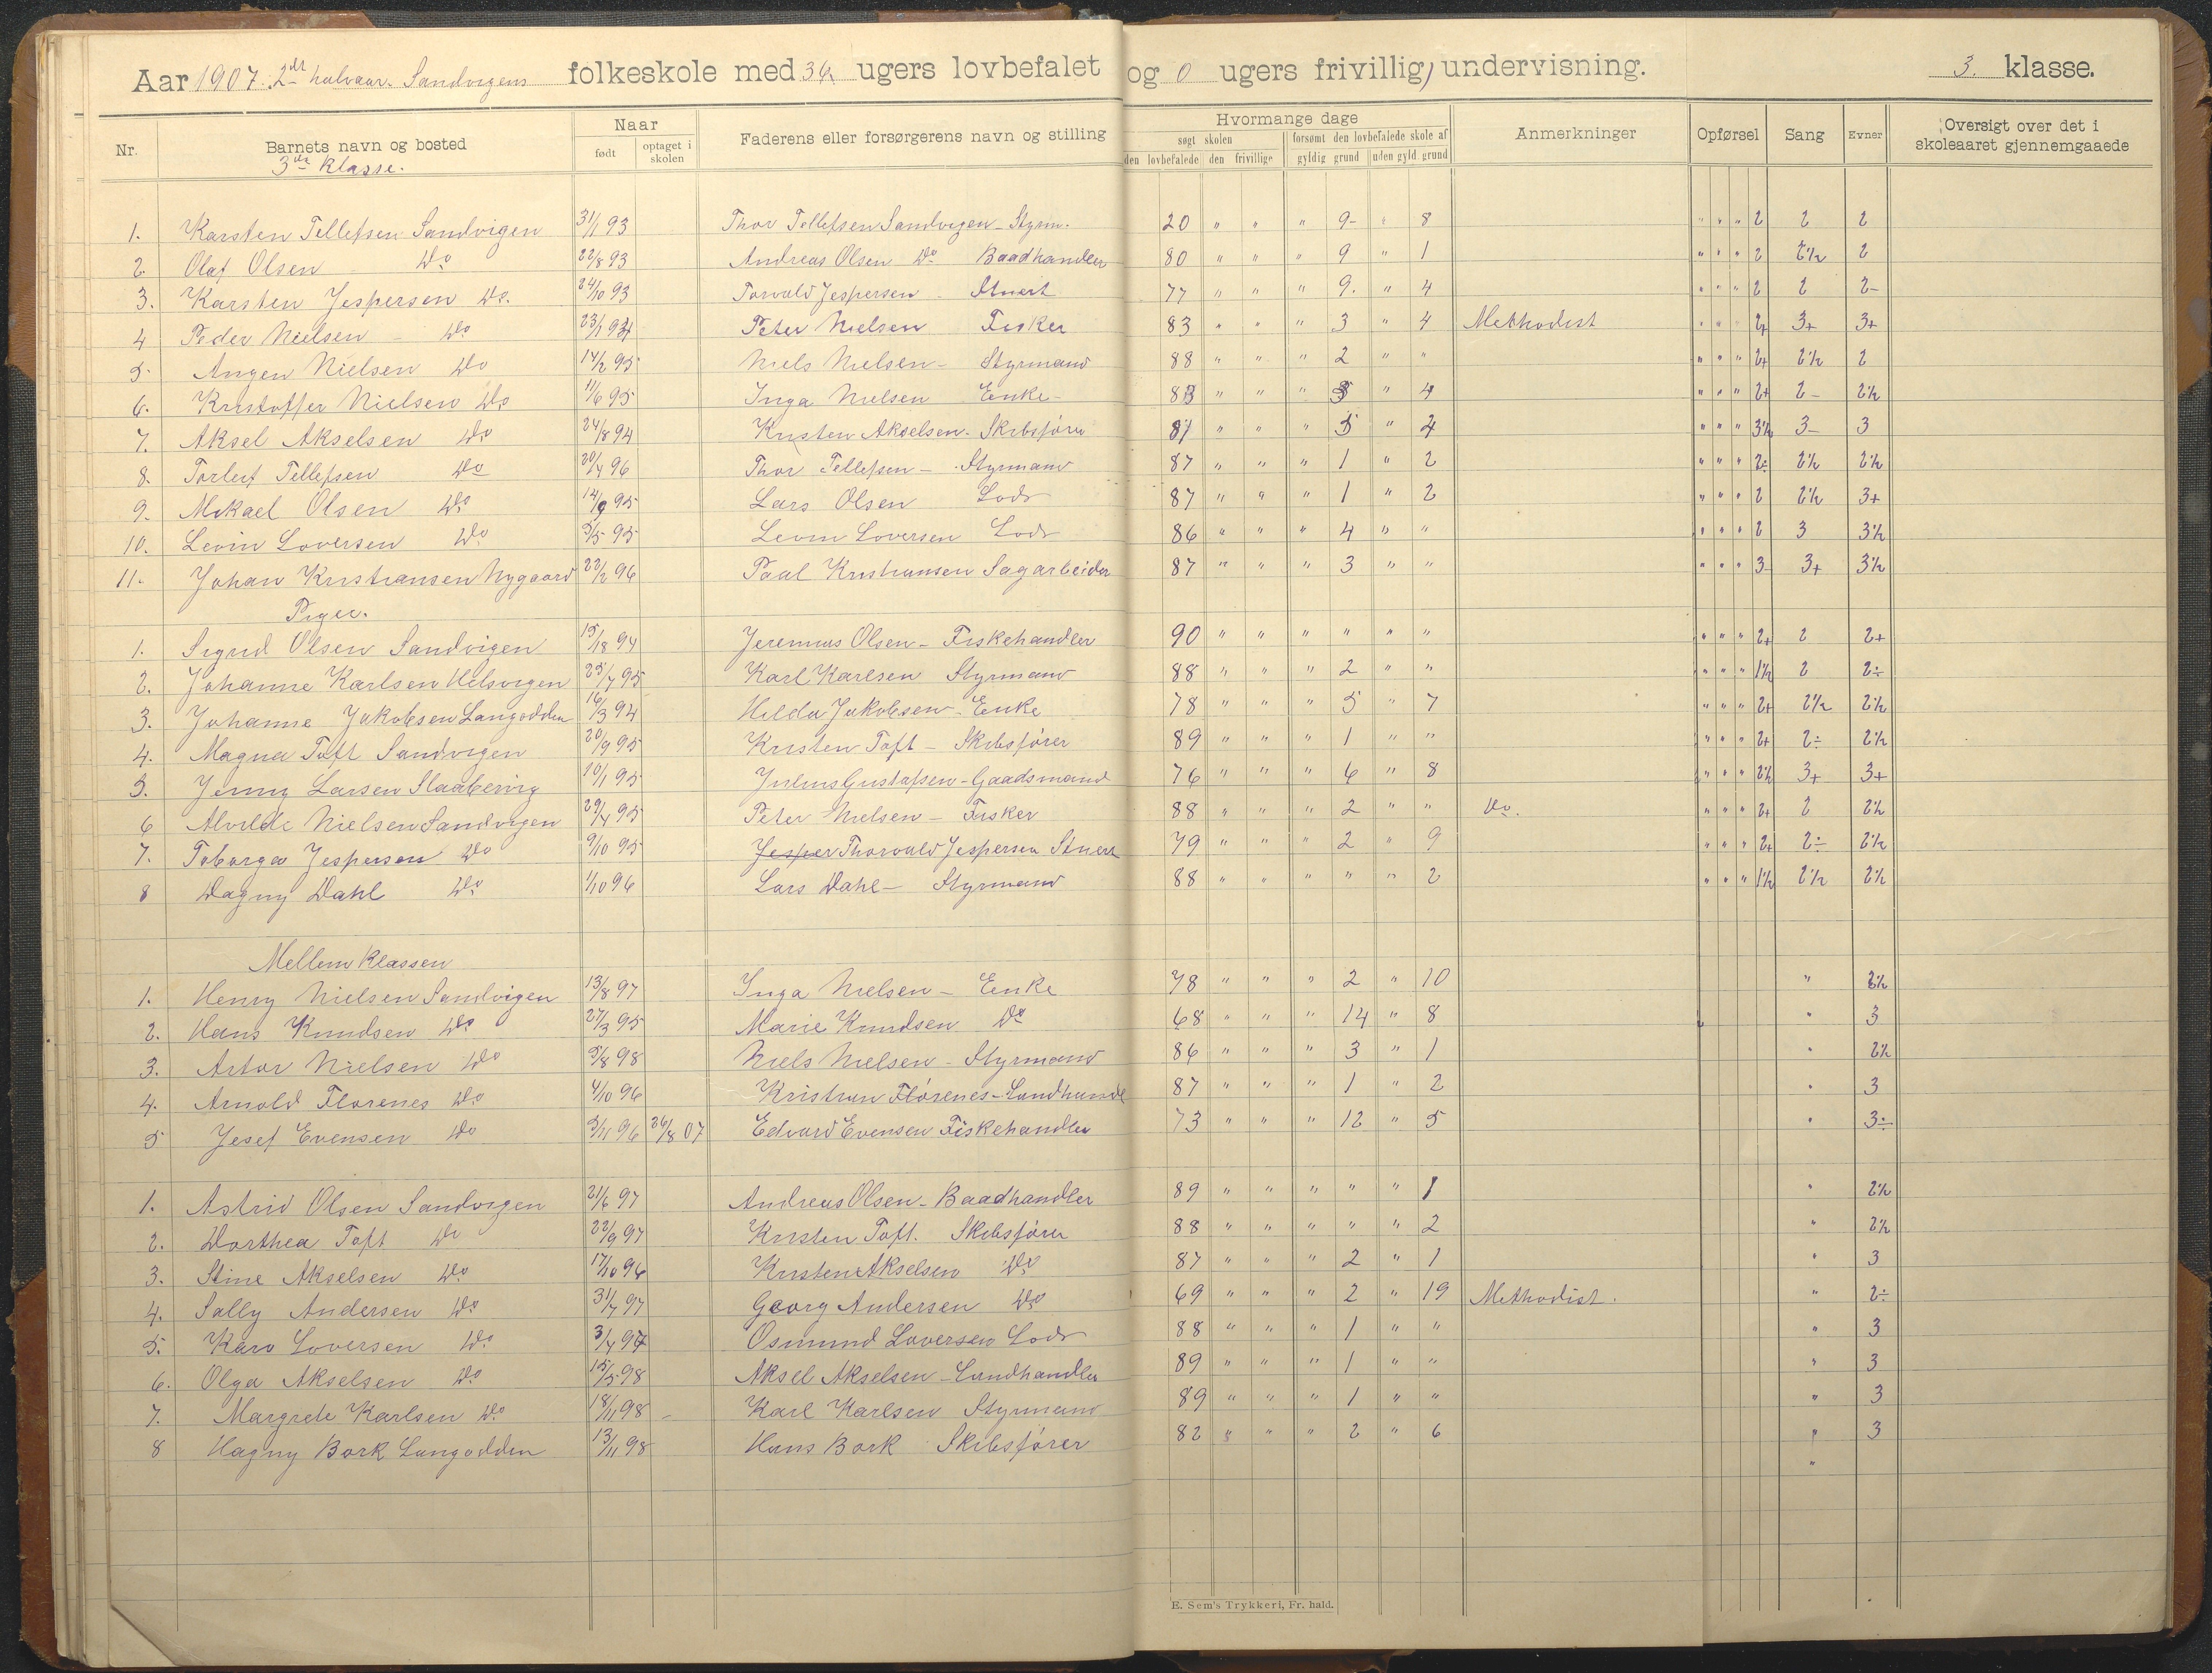 Aar 1907. 2det halvaar. Sandvigens folkeskole med 36 ugers lovbefalet og 0 ugers frivillig undervisning. 3. klasse.
Nr. Barnets navn og bosted Naar født optaget i skolen Faderens eller forsørgerens navn og stilling Hvormange dage søgt skolen den lovbefalede den frivillige forsømt den lovbefalede skole af gyldig grund uden gyld. grund Anmerkninger Opførsel Sang Evner Oversigt over det i skoleaaret gjennemgaaede
3die Klasse.
1. Karsten Tellefsen Sandvigen 31/1 93 Thor Tellefsen Sandvigen - Styrm. 20 " " " 9- " 8 " " " 2 2 2
2. Olaf Olsen Do 22/8 93 Andreas Olsen Do Baadhandler 80 " " " 9 " 1 " " " 2 2½ 2
3. Karsten Jespersen Do. 24/10 93 Torvald Jespersen Stuert 77 " " " 9. " 4 " " " 2 2 2-
4 Peder Nielsen - Do 23/1 94 Peter Nielsen Fisker 83 " " " 3 " 4 Methodist " " " 2+ 3+ 3+
5. Angen Nielsen Do 14/2 95 Niels Nielsen - Styrmand 88 " " " 2 " " " " " 2+ 2½ 2
6. Kristoffer Nielsen Do 11/6 95 Inga Nielsen Enke - 83 " " " 3 " 4 " " " 2+ 2- 2½
7. Aksel Akselsen Do 24/8 94 Kristen Akselsen - Skibsfører 81 " " " 5 " 4 " " " 3½ 3- 3
8. Torleif Tellefsen Do 20/4 96 Thor Tellefsen - Styrmand 87 " " " 1 " 2 " " " 2÷ 2½ 2½
9. Mikael Olsen Do 14/9 95 Lars Olsen Lods 87 " " " 1 " 2 " " " 2 2½ 3+
10. Levin Loversen Do 5/5 95 Levin Loversen Lods 86 " " " 4 " " " " " 2 3 3½
11. Johan Kristiansen Nygaard 22/2 96 Paal Kristiansen Sagarbeider 87 " " " 3 " " " " " 3- 3+ 3½
Piger.
1. Sigrid Olsen Sandvigen 15/8 94 Jeremias Olsen - Fiskehandler 90 " " " " " " " " " 2+ 2 2+
2. Johanne Karlsen Helsvigen 25/7 95 Karl Karlsen Styrmand 88 " " " 2 " " " " " 1½ 2 2÷
3. Johanne Jakobsen Langodden 16/3 94 Hilda Jakobsen - Enke 78 " " " 5 " 7 " " " 2+ 2½ 2½
4. Magna Toft Sandvigen 20/9 95 Kristen Toft - Skibsfører 89 " " " 1 " " " " " 2+ 2÷ 2½
5. Jenny Larsen Slaabervig 10/1 95 Julius Gustafsen - Gaadsmand 76 " " " 6 " 8 " " " 2½ 3+ 3+
6 Alvilde Nielsen Sandvigen 29/4 95 Peter Nielsen - Fisker 88 " " " 2 " " Do. " " " 2+ 2 2½
7. Toborga Jespersen Do 9/10 95 Jesper Thorvald Jespersen Stuert 79 " " " 2 " 9 " " " 2+ 2÷ 2½
8 Dagny Dahl Do 1/10 96 Lars Dahl - Styrmand 88 " " " " " 2 " " " 1½ 2½ 2½
Mellem Klassen
1. Henry Nielsen Sandvigen 13/8 97 Inga Nielsen - Enke 78 " " " 2 " 10 " 2½
2. Hans Knudsen Do 27/3 95 Marie Knudsen Do 68 " " " 14 " 8 " 3
3. Artur Nielsen Do 5/8 98 Niels Nielsen - Styrmand 86 " " " 3 " 1 " 2½
4. Arnold Florenes Do 4/10 96 Kristian Flörenes - Landhandl 87 " " " 1 " 2 " 3
5 Josef Evensen Do 5/11 96 26/8 07 Edvard Evensen Fiskehandler 73 " " " 12 " 5 " 3÷
1. Astrid Olsen Sandvigen 21/6 97 Andreas Olsen - Baadhandler 89 " " " " " 1 " 2½
2. Dorthea Toft Do 22/9 97 Kristen Toft. Skibsfører 88 " " " " " 2 " 2½
3. Stine Akselsen Do 17/10 96 Kristen Akselsen Do 87 " " " 2 " 1 " 3
4. Sally Andersen Do 31/7 97 Georg Andersen Do 69 " " " 2 " 19 Methodist. " 2÷
5. Karo Loversen Do 3/4 97 Osmund Loversen Lods 88 " " " 1 " " " 3
6. Olga Akselsen Do 15/5 98 Aksel Akselsen - Landhandler 89 " " " 1 " " " 3
7. Margrete Karlsen Do 18/11 98 - Karl Karlsen Styrmand 89 " " " 1 " " " 3
8 Hagny Bork Langodden 13/11 98 Hans Bork Skibsfører 82 " " " 2 " 6 " 3
"
E. Sem's Trykkeri, Fr. hald.